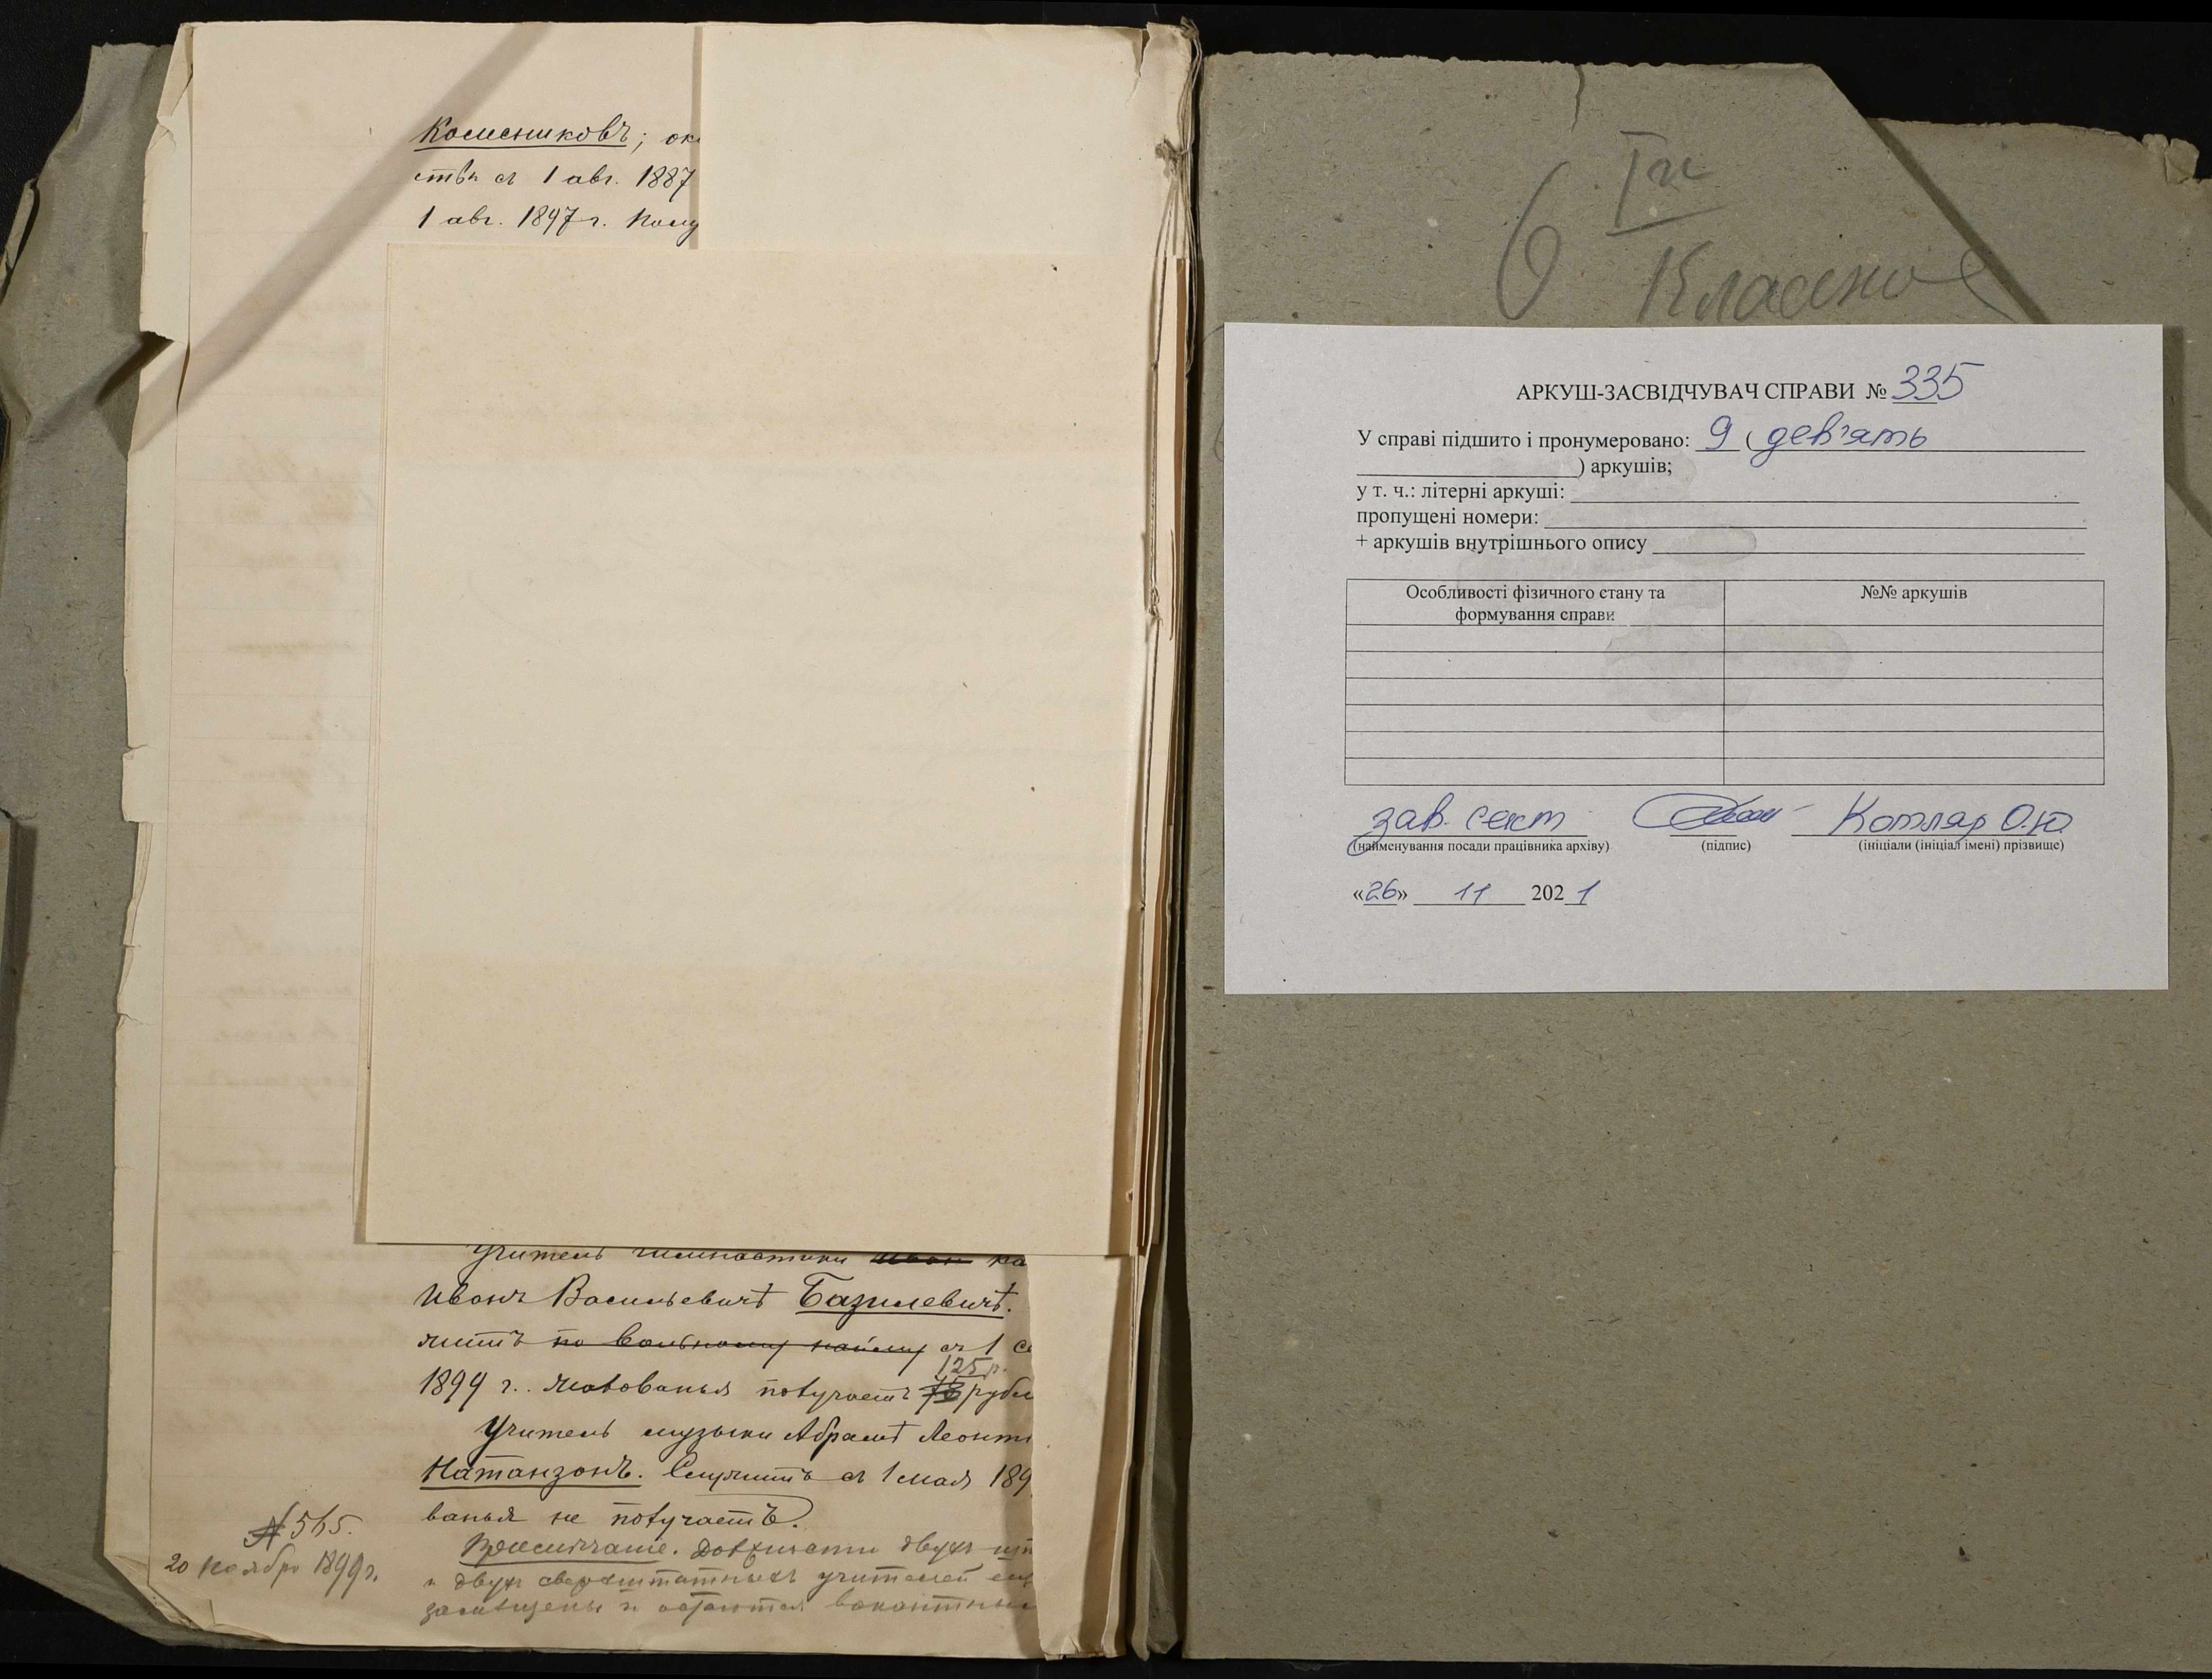 Колесниковъ; ок
ства съ 1 авг. 1887
1 авг. 1897 г. Полу
Учитель гимнастики Иван на
Иванъ Васильевичъ Базилевичъ.
житъ по вольному найму съ 1 се
125 р.
1899 г. Жалованья получаетъ рубл
Учитель музыки Абрамъ Леонть
Натанзонъ. Служитъ съ 1 мая 189
ванья не получаетъ.
Примѣчаніе. Должности двухъ шт
и двухъ сверхштатныхъ учителей ещ
замѣщены и остаются вакантны
№ 565.
20 ноября 1899 г.
6
Классное
АРКУШ-ЗАСВІДЧУВАЧ СПРАВИ № 335
У справі підшито і пронумеровано: 9 ( дев'ять
) аркушів;
у т. ч.: літерні аркуші:
пропущені номери:
+ аркушів внутрішнього опису
Особливості фізичного стану та формування справи
№№ аркушів
зав. сект Котляр О.Ю.
(найменування посади працівника архіву) (підпис) (ініціали (ініціал імені) прізвище)
«26» 11 2021